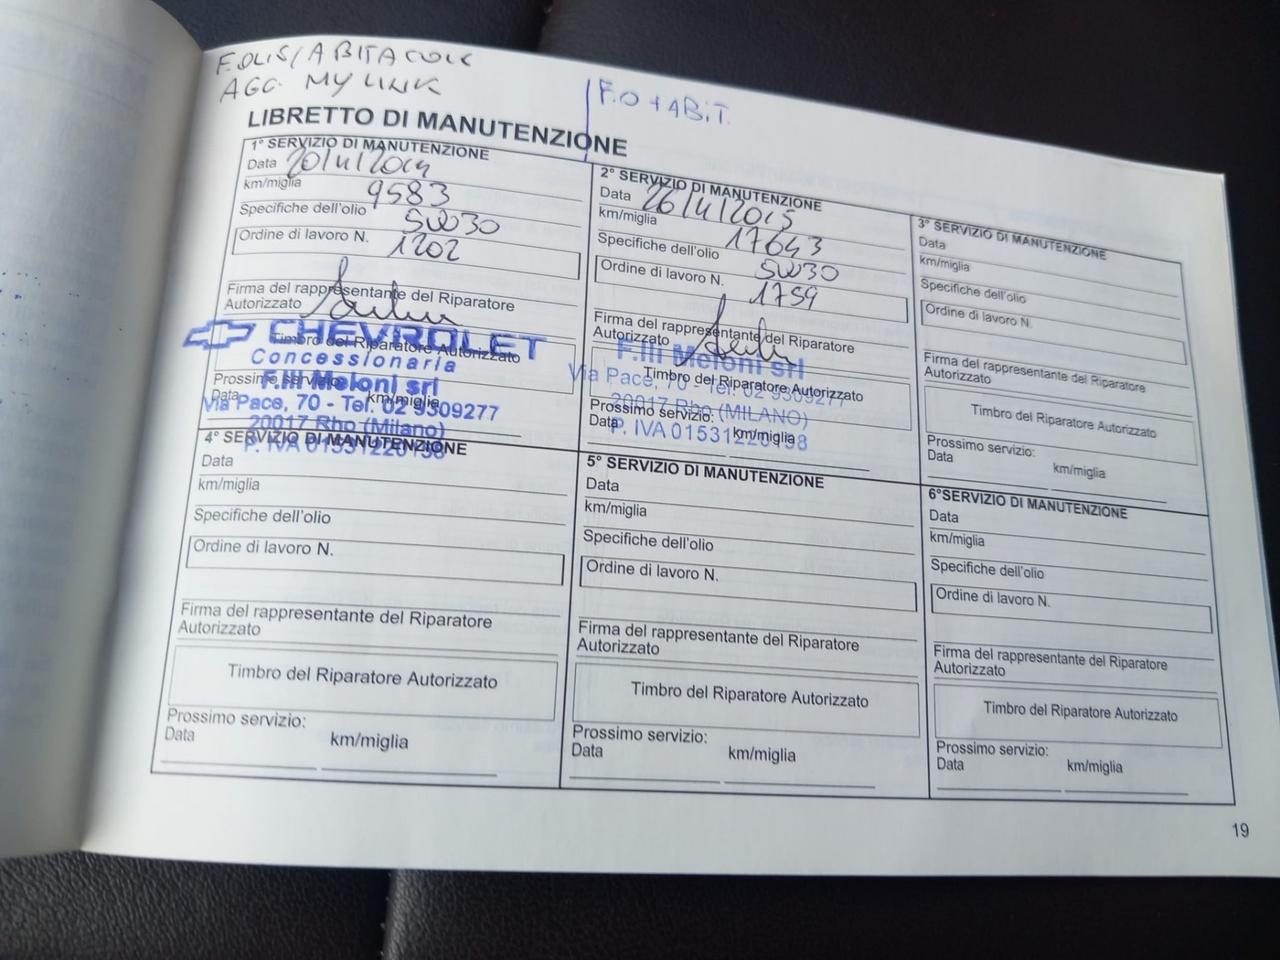 F.OLIS/ABITACOLO
AGG. MY LINK
F.O + ABIT.
LIBRETTO DI MANUTENZIONE
1° SERVIZIO DI MANUTENZIONE
Data 20/11/2014
km/miglia 9583
Specifiche dell'olio 5W30
Ordine di lavoro N. 1202
Firma del rappresentante del Riparatore
Autorizzato
CHEVROLET
Timbro del Riparatore Autorizzato
Concessionaria
F.lli Meloni srl
Prossimo servizio:
Data km/miglia
Via Pace, 70 - Tel. 02 9309277
20017 Rho (Milano)
P. IVA 01531220158
2° SERVIZIO DI MANUTENZIONE
Data 26/11/2015
km/miglia 17643
Specifiche dell'olio 5W30
Ordine di lavoro N. 1759
Firma del rappresentante del Riparatore
Autorizzato
F.lli Meloni srl
Timbro del Riparatore Autorizzato
Via Pace, 70 - Tel. 02 9309277
20017 Rho (MILANO)
Prossimo servizio:
Data km/miglia
P. IVA 01531220158
3° SERVIZIO DI MANUTENZIONE
Data
km/miglia
Specifiche dell'olio
Ordine di lavoro N.
Firma del rappresentante del Riparatore
Autorizzato
Timbro del Riparatore Autorizzato
Prossimo servizio:
Data km/miglia
4° SERVIZIO DI MANUTENZIONE
Data
km/miglia
Specifiche dell'olio
Ordine di lavoro N.
Firma del rappresentante del Riparatore
Autorizzato
Timbro del Riparatore Autorizzato
Prossimo servizio:
Data km/miglia
5° SERVIZIO DI MANUTENZIONE
Data
km/miglia
Specifiche dell'olio
Ordine di lavoro N.
Firma del rappresentante del Riparatore
Autorizzato
Timbro del Riparatore Autorizzato
Prossimo servizio:
Data km/miglia
6°SERVIZIO DI MANUTENZIONE
Data
km/miglia
Specifiche dell'olio
Ordine di lavoro N.
Firma del rappresentante del Riparatore
Autorizzato
Timbro del Riparatore Autorizzato
Prossimo servizio:
Data km/miglia
19